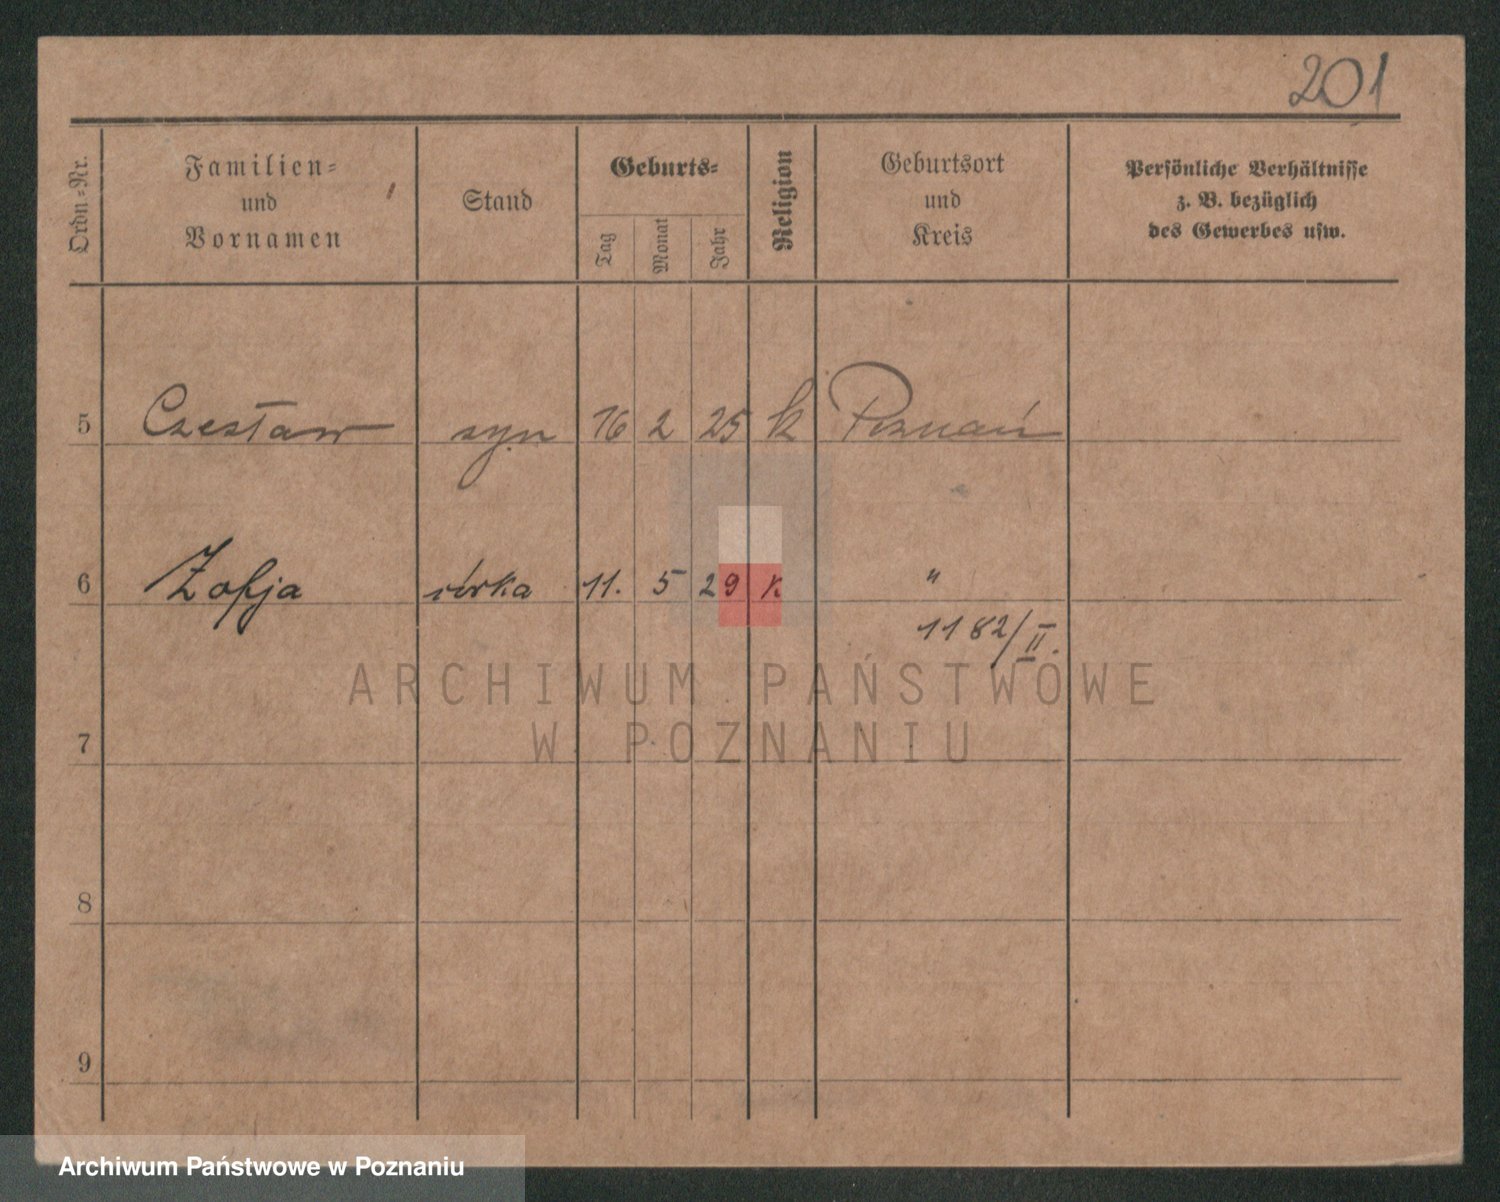 201
Ordn=Nr.
Familien=
und
Vornamen
Stand
Geburts=
Tag
Monat
Jahr
Religion
Geburtsort
und
Kreis
Persönliche Verhältnisse
z. B. bezüglich
des Gewerbes usw.
5 Czesław syn 16 2 25 k Poznań
6 Zofja córka 11. 5 29 k "
1182/II.
ARCHIWUM PAŃSTWOWE
W POZNANIU
7
8
9
Archiwum Państwowe w Poznaniu